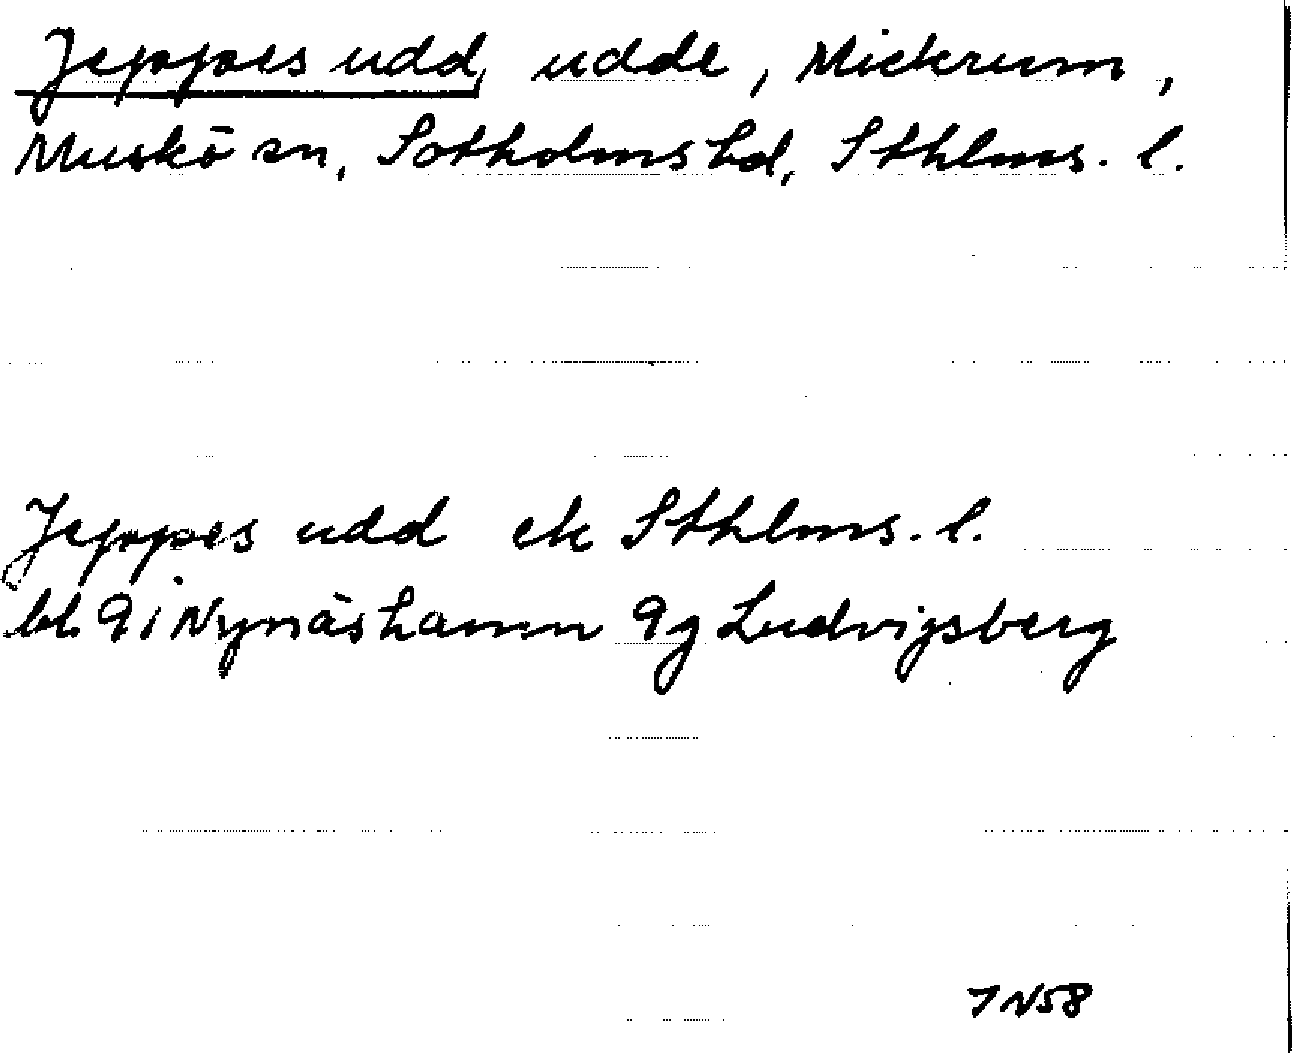 Jeppes udd, udde, Mickrum,
Muskö sn, Sotholms hd, Sthlms. l.
Jeppes udd ek Sthlms. l.
bl. 9 i Nynäshamn 9g Ludvigsberg
7N58